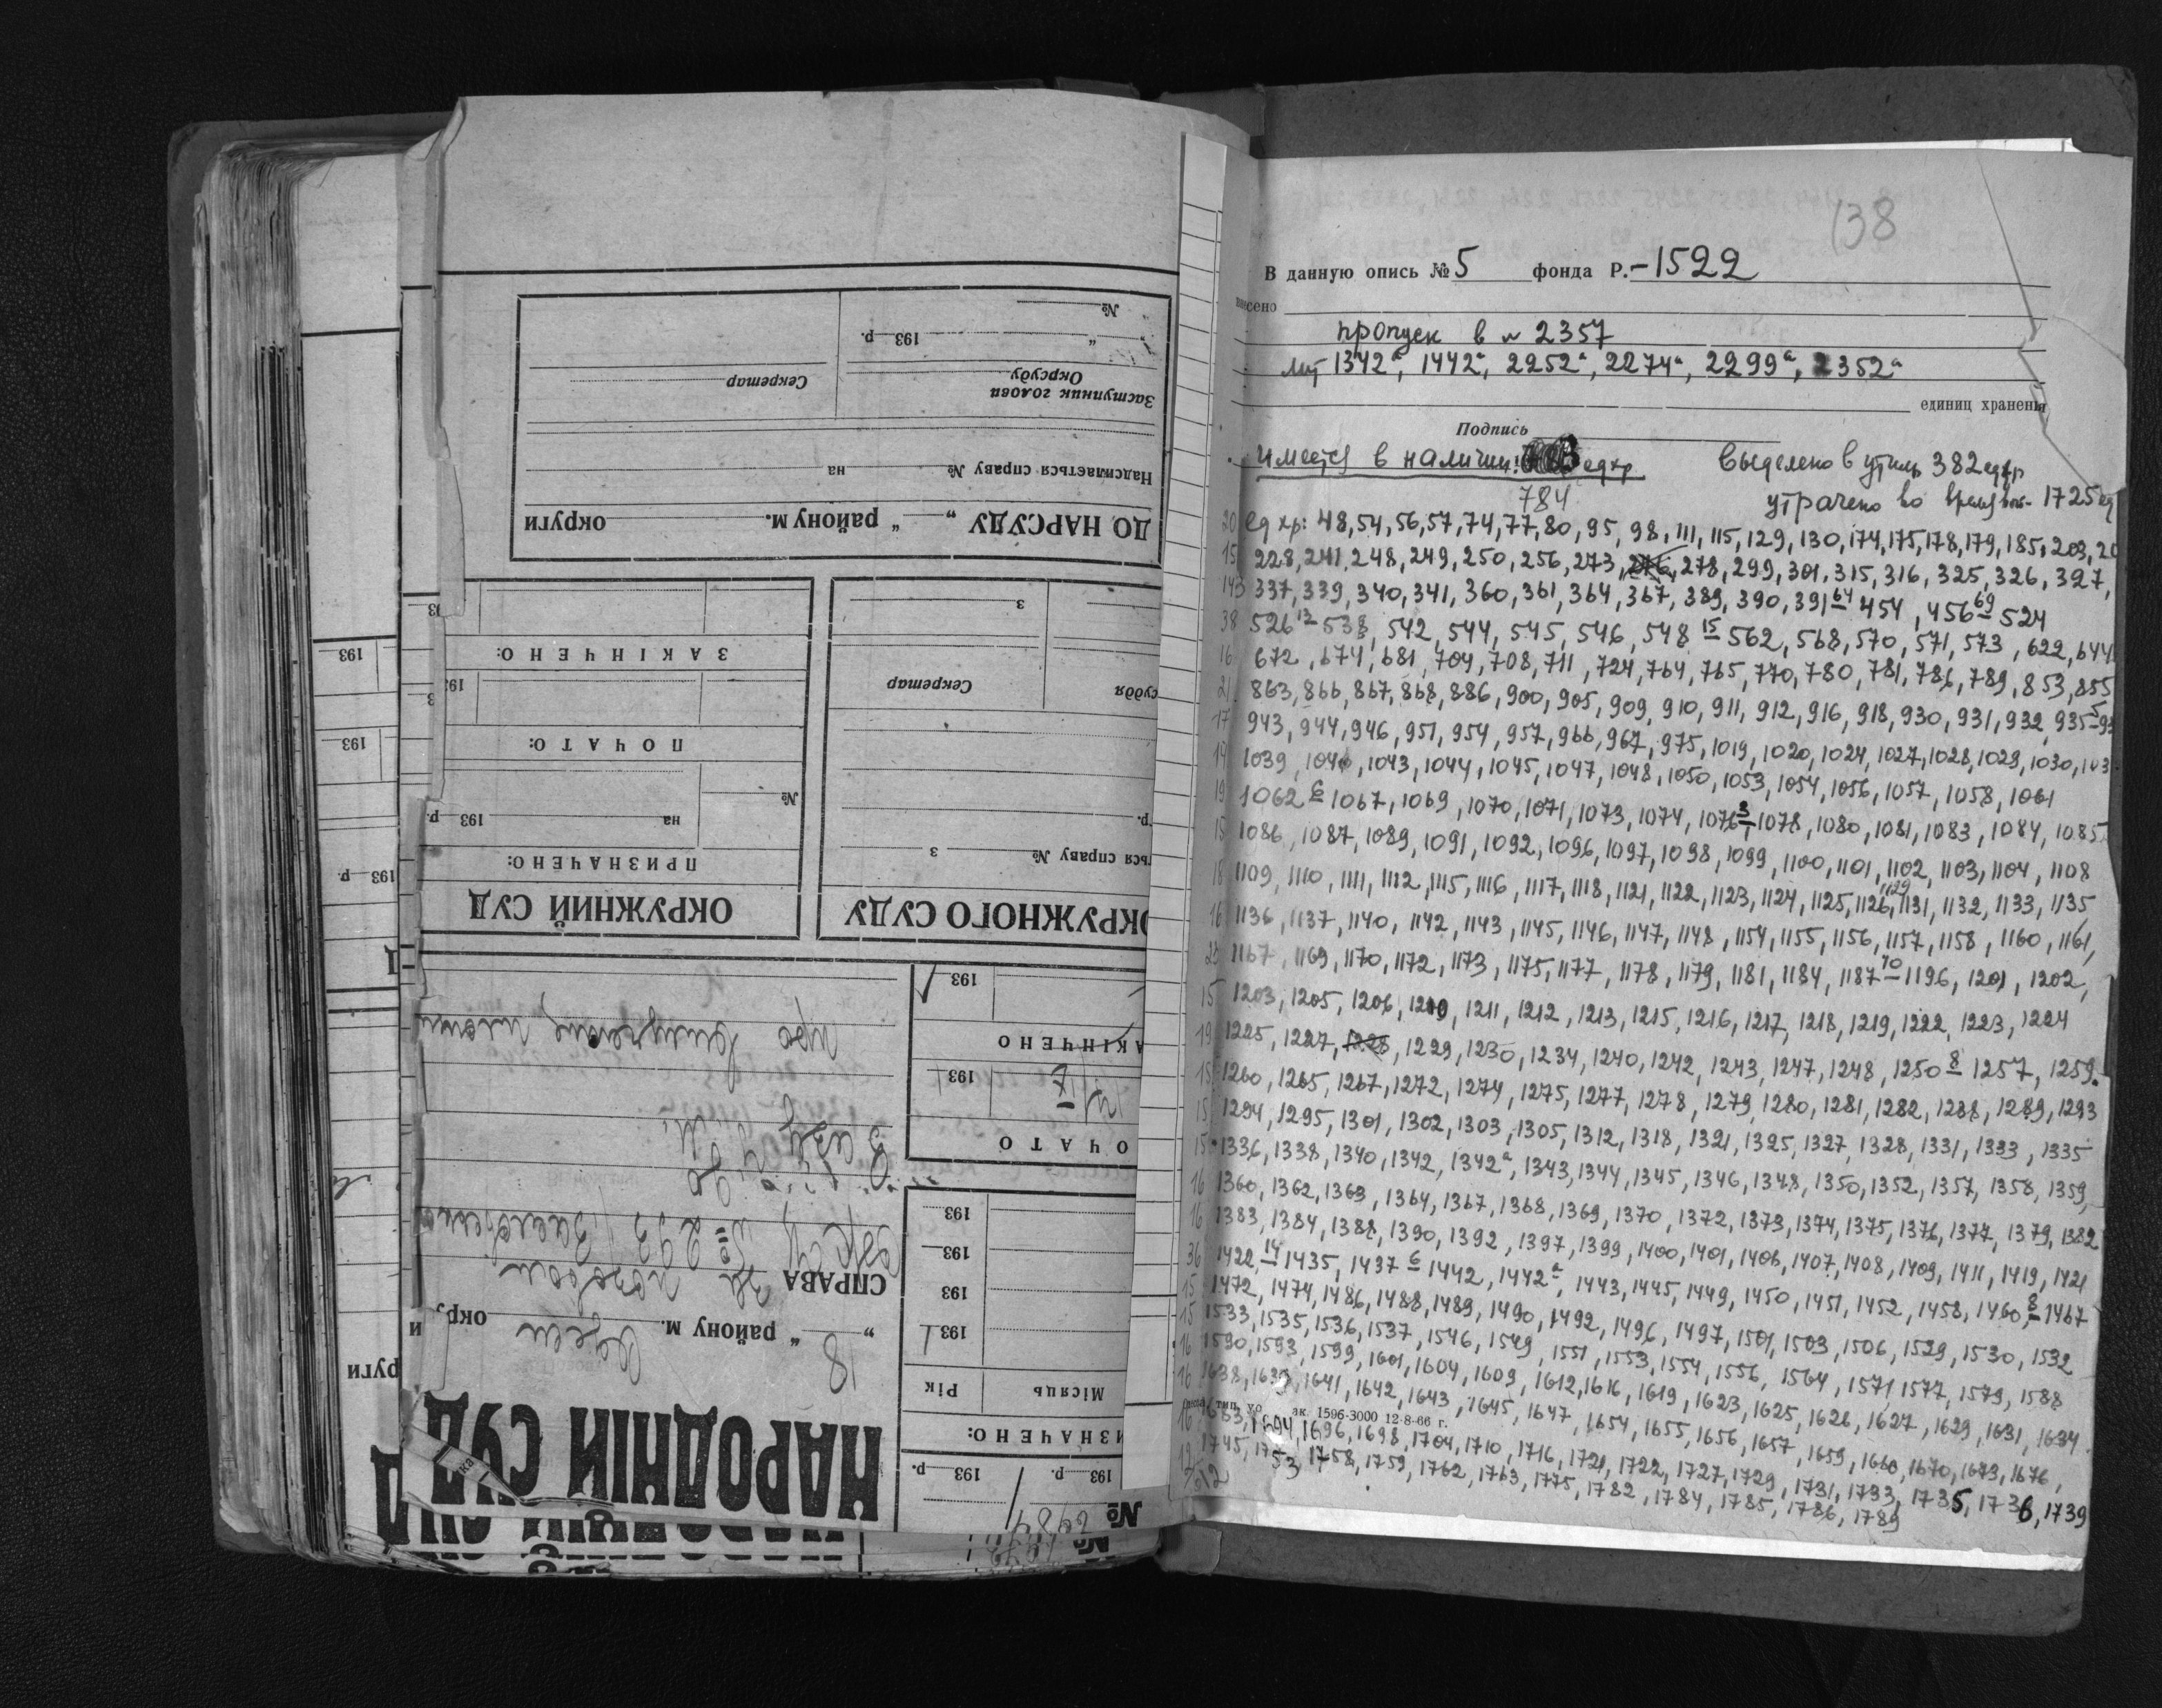 №
" " 193 р.
Заступник голови
Окрсуду
Секретар
Надсилається справу № на
ДО НАРСУДУ „ “ району м. округи
193
ЗАКІНЧЕНО:
193
ПОЧАТО:
№
на 193 р.
ПРИЗНАЧЕНО:
ОКРУЖНИЙ СУД
з
судя Секретар
р.
ться справу № з
ОКРУЖНОГО СУДУ
193
АКІНЧЕНО
193
ОЧАТО
193
193
193
193
Місяць Рік
ИЗНАЧЕНО:
193 р. 193 р.
№ 2484
про
СПРАВА
18 “ району м. Одеси окр.
НАРОДНІЙ СУД
138
В данную опись № 5 фонда Р.-1522
внесено
пропуск в № 2357
лит 1342а, 1442а, 2252а, 2274а, 2299а, 2352а
единиц хранения
Подпись
Имеется в наличии: ед хр выделено в утиль 382 ед хр
784 утрачено во время вов - 1725 ед
20 ед хр: 48, 54, 56, 57, 74, 77, 80, 95, 98, 111, 115, 129, 130, 174, 175, 178, 179, 185, 203, 20
15 228, 241, 248, 249, 250, 256, 273, 276, 278, 299, 301, 315, 316, 325, 326, 327,
143 337, 339, 340, 341, 360, 361, 364, 367, 389, 390, 391 64 – 454, 456 69 – 524
38 526 12 – 538, 542, 544, 545, 546, 548 15 – 562, 568, 570, 571, 573, 622, 644
16 672, 674, 681, 704, 708, 711, 724, 764, 765, 770, 780, 781, 786, 789, 853, 855
21 863, 866, 867, 868, 886, 900, 905, 909, 910, 911, 912, 916, 918, 930, 931, 932, 935 5 – 93
17 943, 944, 946, 951, 954, 957, 966, 967, 975, 1019, 1020, 1024, 1027, 1028, 1029, 1030, 103
14 1039, 1040, 1043, 1044, 1045, 1047, 1048, 1050, 1053, 1054, 1056, 1057, 1058, 1061
19 1062 6 – 1067, 1069, 1070, 1071, 1073, 1074, 1076 3 – 1078, 1080, 1081, 1083, 1084, 1085
15 1086, 1087, 1089, 1091, 1092, 1096, 1097, 1098, 1099, 1100, 1101, 1102, 1103, 1104, 1108
18 1109, 1110, 1111, 1112, 1115, 1116, 1117, 1118, 1121, 1122, 1123, 1124, 1125, 1126, 1129, 1131, 1132, 1133, 1135
16 1136, 1137, 1140, 1142, 1143, 1145, 1146, 1147, 1148, 1154, 1155, 1156, 1157, 1158, 1160, 1161,
1167, 1169, 1170, 1172, 1173, 1175, 1177, 1178, 1179, 1181, 1184, 1187 10 – 1196, 1201, 1202,
15 1203, 1205, 1206, 1210, 1211, 1212, 1213, 1215, 1216, 1217, 1218, 1219, 1222, 1223, 1224
19 1225, 1227, 1228, 1229, 1230, 1234, 1240, 1242, 1243, 1247, 1248, 1250 8 – 1257, 1259.
15 1260, 1265, 1267, 1272, 1274, 1275, 1277, 1278, 1279, 1280, 1281, 1282, 1288, 1289, 1293
15 1294, 1295, 1301, 1302, 1303, 1305, 1312, 1318, 1321, 1325, 1327, 1328, 1331, 1333, 1335
15 1336, 1338, 1340, 1342, 1342а, 1343, 1344, 1345, 1346, 1348, 1350, 1352, 1357, 1358, 1359,
16 1360, 1362, 1363, 1364, 1367, 1368, 1369, 1370, 1372, 1373, 1374, 1375, 1376, 1377, 1379, 1382
16 1383, 1384, 1388, 1390, 1392, 1397, 1399, 1400, 1401, 1406, 1407, 1408, 1409, 1411, 1419, 1421
36 1422 14 – 1435, 1437 6 – 1442, 1442а, 1443, 1445, 1449, 1450, 1451, 1452, 1458, 1460 8 – 1467
15 1472, 1474, 1486, 1488, 1489, 1490, 1492, 1496, 1497, 1501, 1503, 1506, 1529, 1530, 1532
15 1533, 1535, 1536, 1537, 1546, 1549, 1551, 1553, 1554, 1556, 1564, 1571, 1577, 1579, 1588
16 1590, 1593, 1599, 1601, 1604, 1609, 1612, 1616, 1619, 1623, 1625, 1626, 1627, 1629, 1631, 1634
16 1638, 1639, 1641, 1642, 1643, 1645, 1647, 1654, 1655, 1656, 1657, 1659, 1660, 1670, 1673, 1676,
тип. ак. 1596-3000 12-8-66 г.
16 1683, 1694, 1696, 1698, 1704, 1710, 1716, 1721, 1722, 1727, 1729, 1731, 1733, 1735, 1736, 1739
12 1745, 1753, 1758, 1759, 1762, 1763, 1775, 1782, 1784, 1785, 1786, 1789